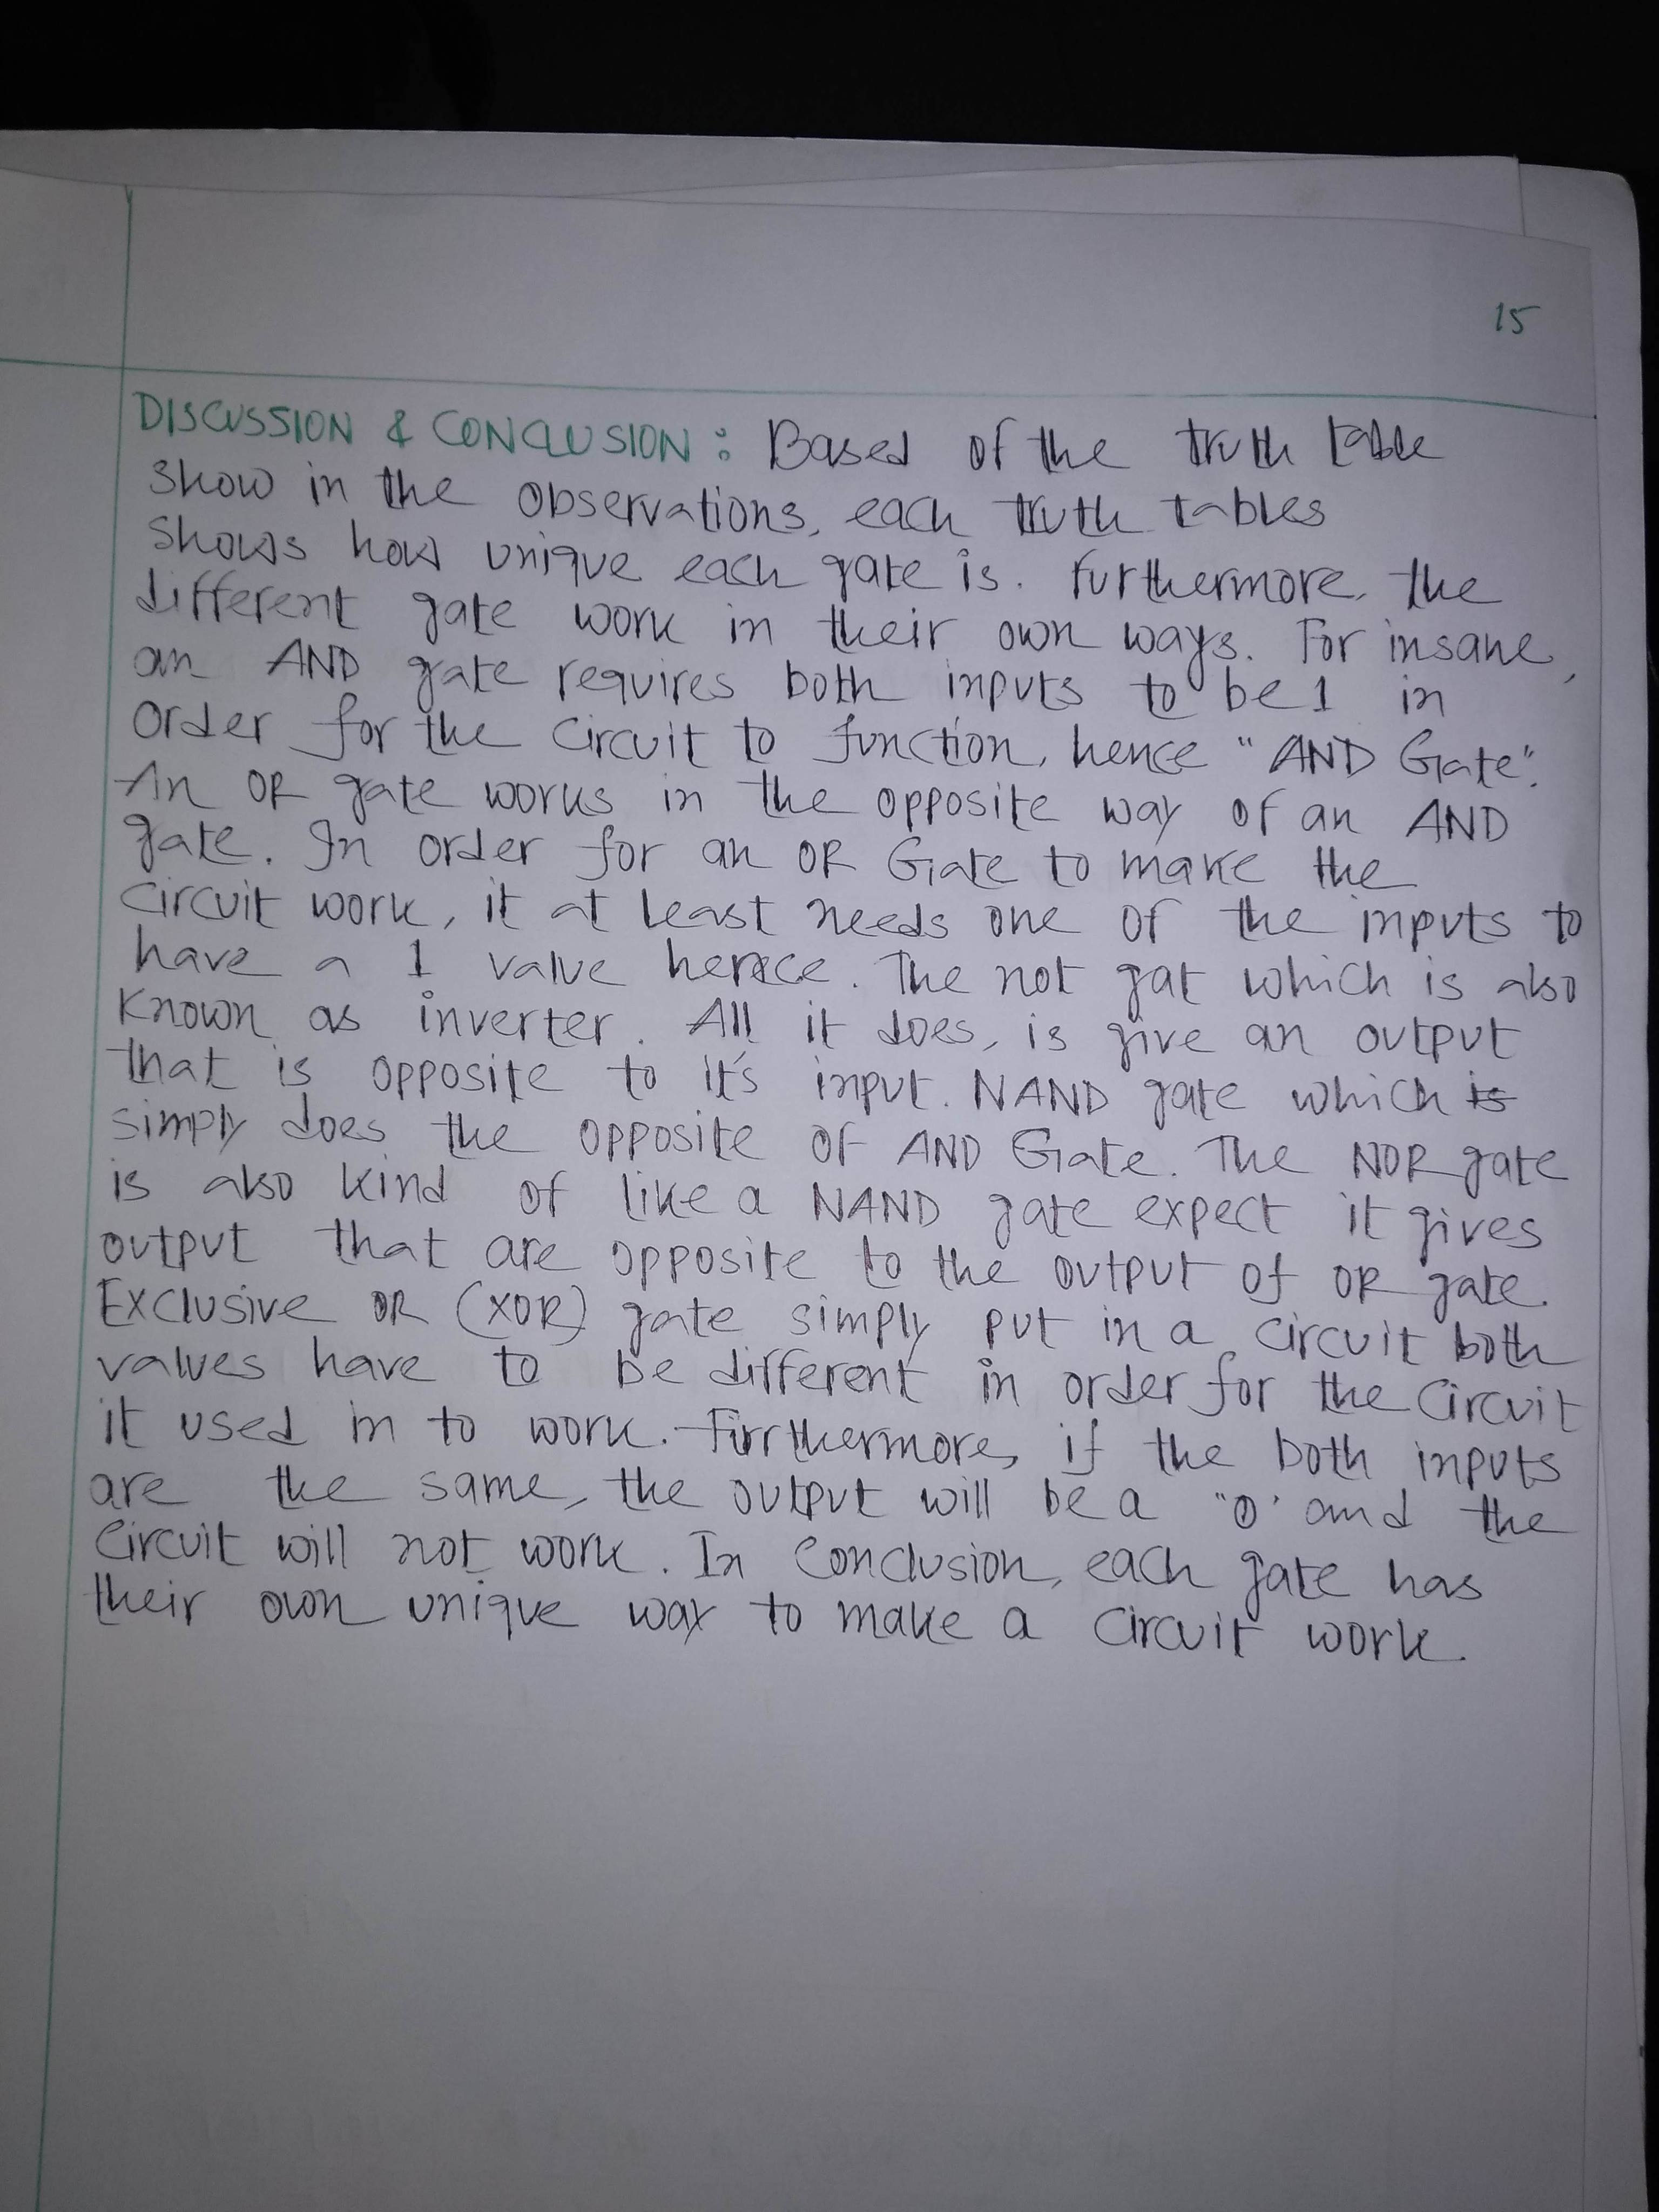 15
DISCUSSION & CONCLUSION : Based of the truth table
show in the observations, each truth tables
shows how unique each gate is. furthermore, the
different gate work in their own ways. For insane,
an AND gate requires both inputs to be 1 in
order for the circuit to function, hence "AND Gate".
An OR gate works in the opposite way of an AND
gate. In order for an OR Gate to make the
circuit work, it at least needs one of the inputs to
have a 1 value hence. The not gat which is also
known as inverter. All it does, is give an output
that is opposite to it's input. NAND gate which is
simply does the opposite of AND Gate. The NOR gate
is also kind of like a NAND gate expect it gives
output that are opposite to the output of OR gate.
Exclusive OR (XOR) gate simply put in a circuit both
values have to be different in order for the circuit
it used in to work. Furthermore, if the both inputs
are the same, the output will be a "0' and the
circuit will not work. In conclusion, each gate has
their own unique way to make a circuit work.